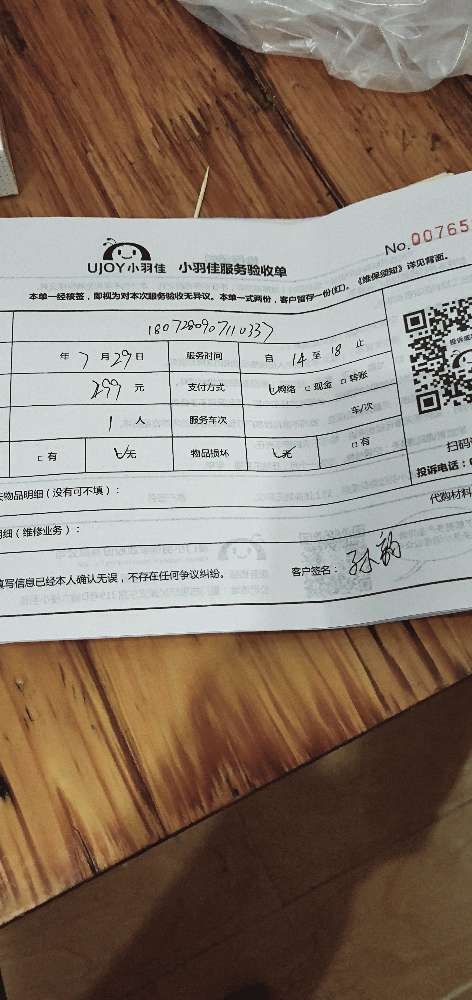 UJOY小羽佳 小羽佳服务验收单
No.00765
本单一经核签，即视为对本次服务验收无异议。本单一式两份，客户暂存一份(红)。《维保须知》详见背面。
1807280907110337
年7月29日 服务时间 自14至18止
299元 支付方式 网络 现金 转账
1人 服务车次 车/次
有 无 物品损坏 无 有
扫码
物品明细（没有可不填）：
投诉电话：0
代购材料
细（维修业务）：
填写信息已经本人确认无误，不存在任何争议纠纷。 客户签名：